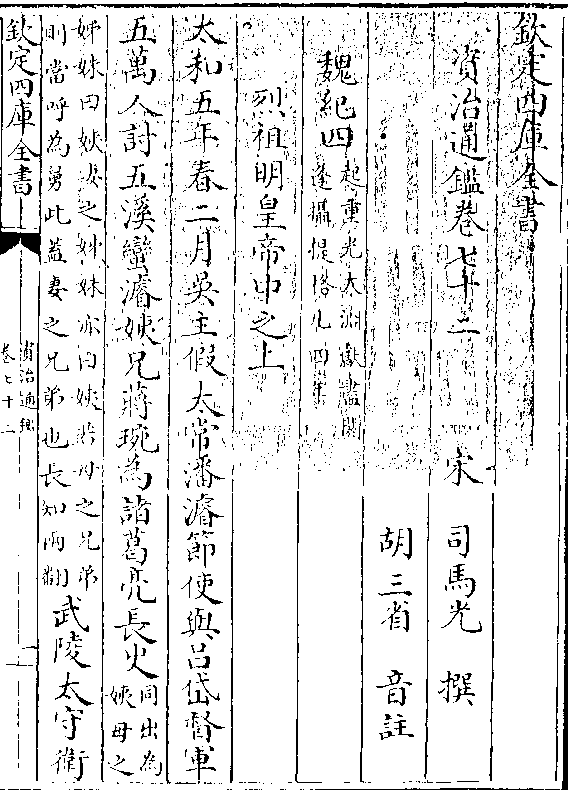 欽定四庫全書
資治通鑑巻七十二
宋 司馬光 撰
胡三省 音註
魏紀四
起重光大淵獻盡閼
逢攝提格凡四年
烈祖明皇帝中之上
太和五年春二月吳主假太常潘濬節使與吕岱督軍
五萬人討五溪蠻濬姨兄蔣琬為諸葛亮長史
同出為
姨母之
姊妹曰姨妻之姊妹亦曰姨若母之兄弟
則當呼為舅此蓋妻之兄弟也長知兩翻
武陵太守衛
欽定四庫全書
資治通鑑
巻七十二
一